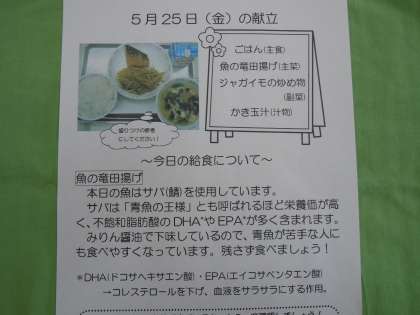 5月25日（金）の献立
ごはん(主食)
魚の竜田揚げ(主菜)
ジャガイモの炒め物
(副菜)
かき玉汁(汁物)
盛りつけの参考
にしてください！
～今日の給食について～
魚の竜田揚げ
本日の魚はサバ(鯖)を使用しています。
サバは「青魚の王様」とも呼ばれるほど栄養価が高
く、不飽和脂肪酸のDHA*やEPA*が多く含まれます。
みりん醤油で下味しているので、青魚が苦手な人に
も食べやすくなっています。残さず食べましょう！
＊DHA(ドコサヘキサエン酸)・EPA(エイコサペンタエン酸)
→コレステロールを下げ、血液をサラサラにする作用。